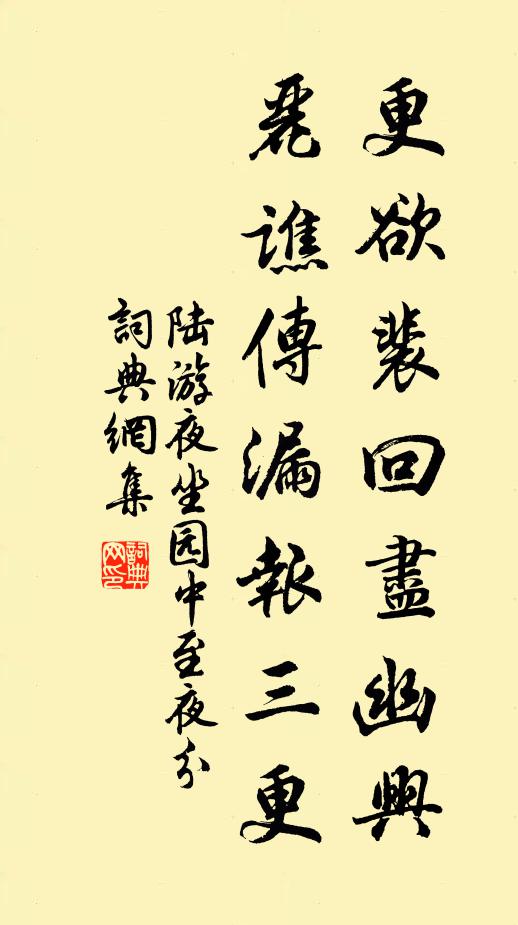 更欲裴回盡幽興
麗譙傳漏報三更
陆游夜坐园中至夜分
詞典網集
詞典網印